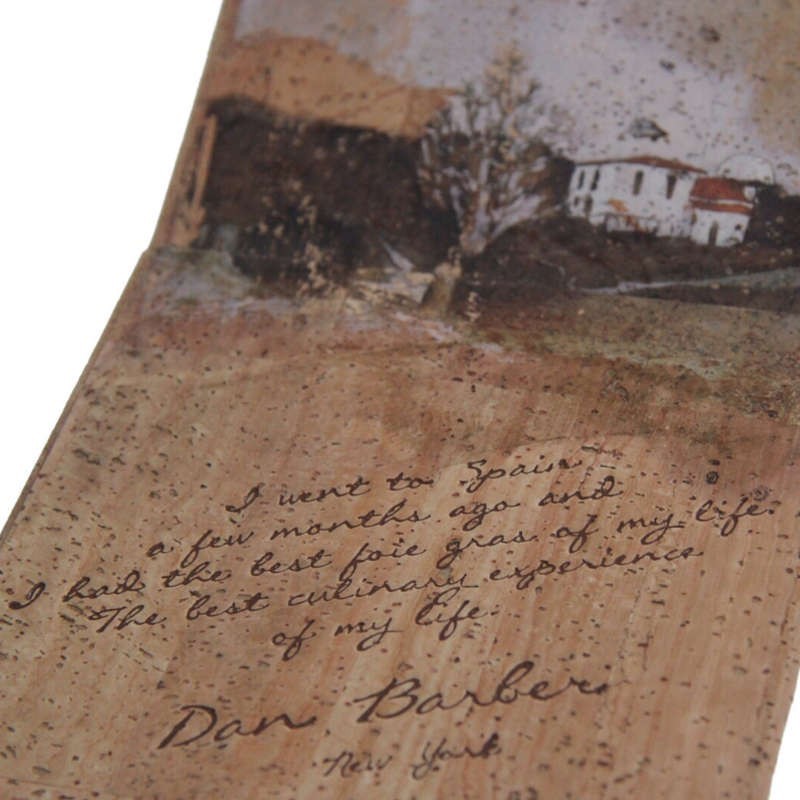 I went to Spain
a few months ago and
I had the best foie gras of my life.
The best culinary experience
of my life.
Dan Barber
New York